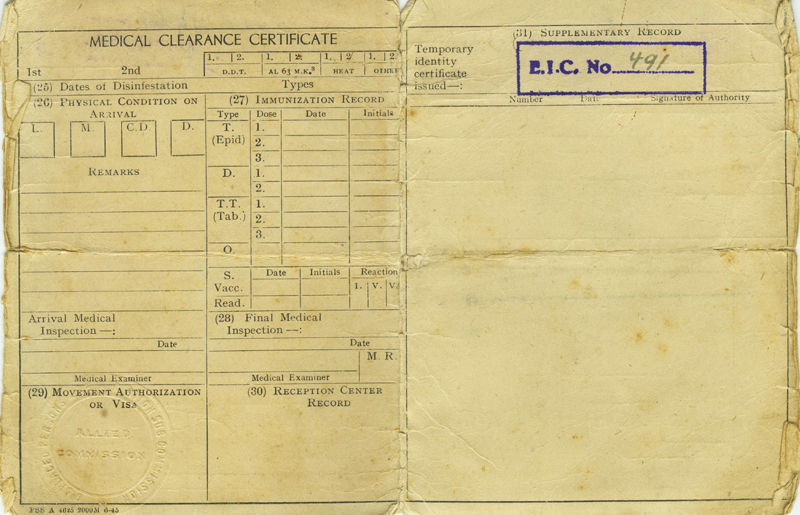 MEDICAL CLEARANCE CERTIFICATE
1st 2nd
1. 2. 1. 2. 1. 2 1. 2.
D.D.T. AL 63 M.K.³ HEAT OTHE
(25) Dates of Disinfestation Types
(26) PHYSICAL CONDITION ON
ARRIVAL
L. M. C.D. D.
REMARKS
Arrival Medical
Inspection —:
Date
Medical Examiner
(29) MOVEMENT AUTHORIZATION
OR VISA
ALLIED
COMMISSION
PSS A 4615 2000M 6-45
(27) IMMUNIZATION RECORD
Type Dose Date Initials
T. 1.
(Epid) 2.
3.
D. 1.
2.
T.T. 1.
(Tab.) 2.
3.
O.
S. Date Initials Reaction
Vacc. I. V. V
Read.
(28) Final Medical
Inspection —:
Date
M. R.
Medical Examiner
(30) RECEPTION CENTER
RECORD
(31) SUPPLEMENTARY RECORD
Temporary
identity
certificate
issued—:
E.I.C. No. 491
Number Date Signature of Authority